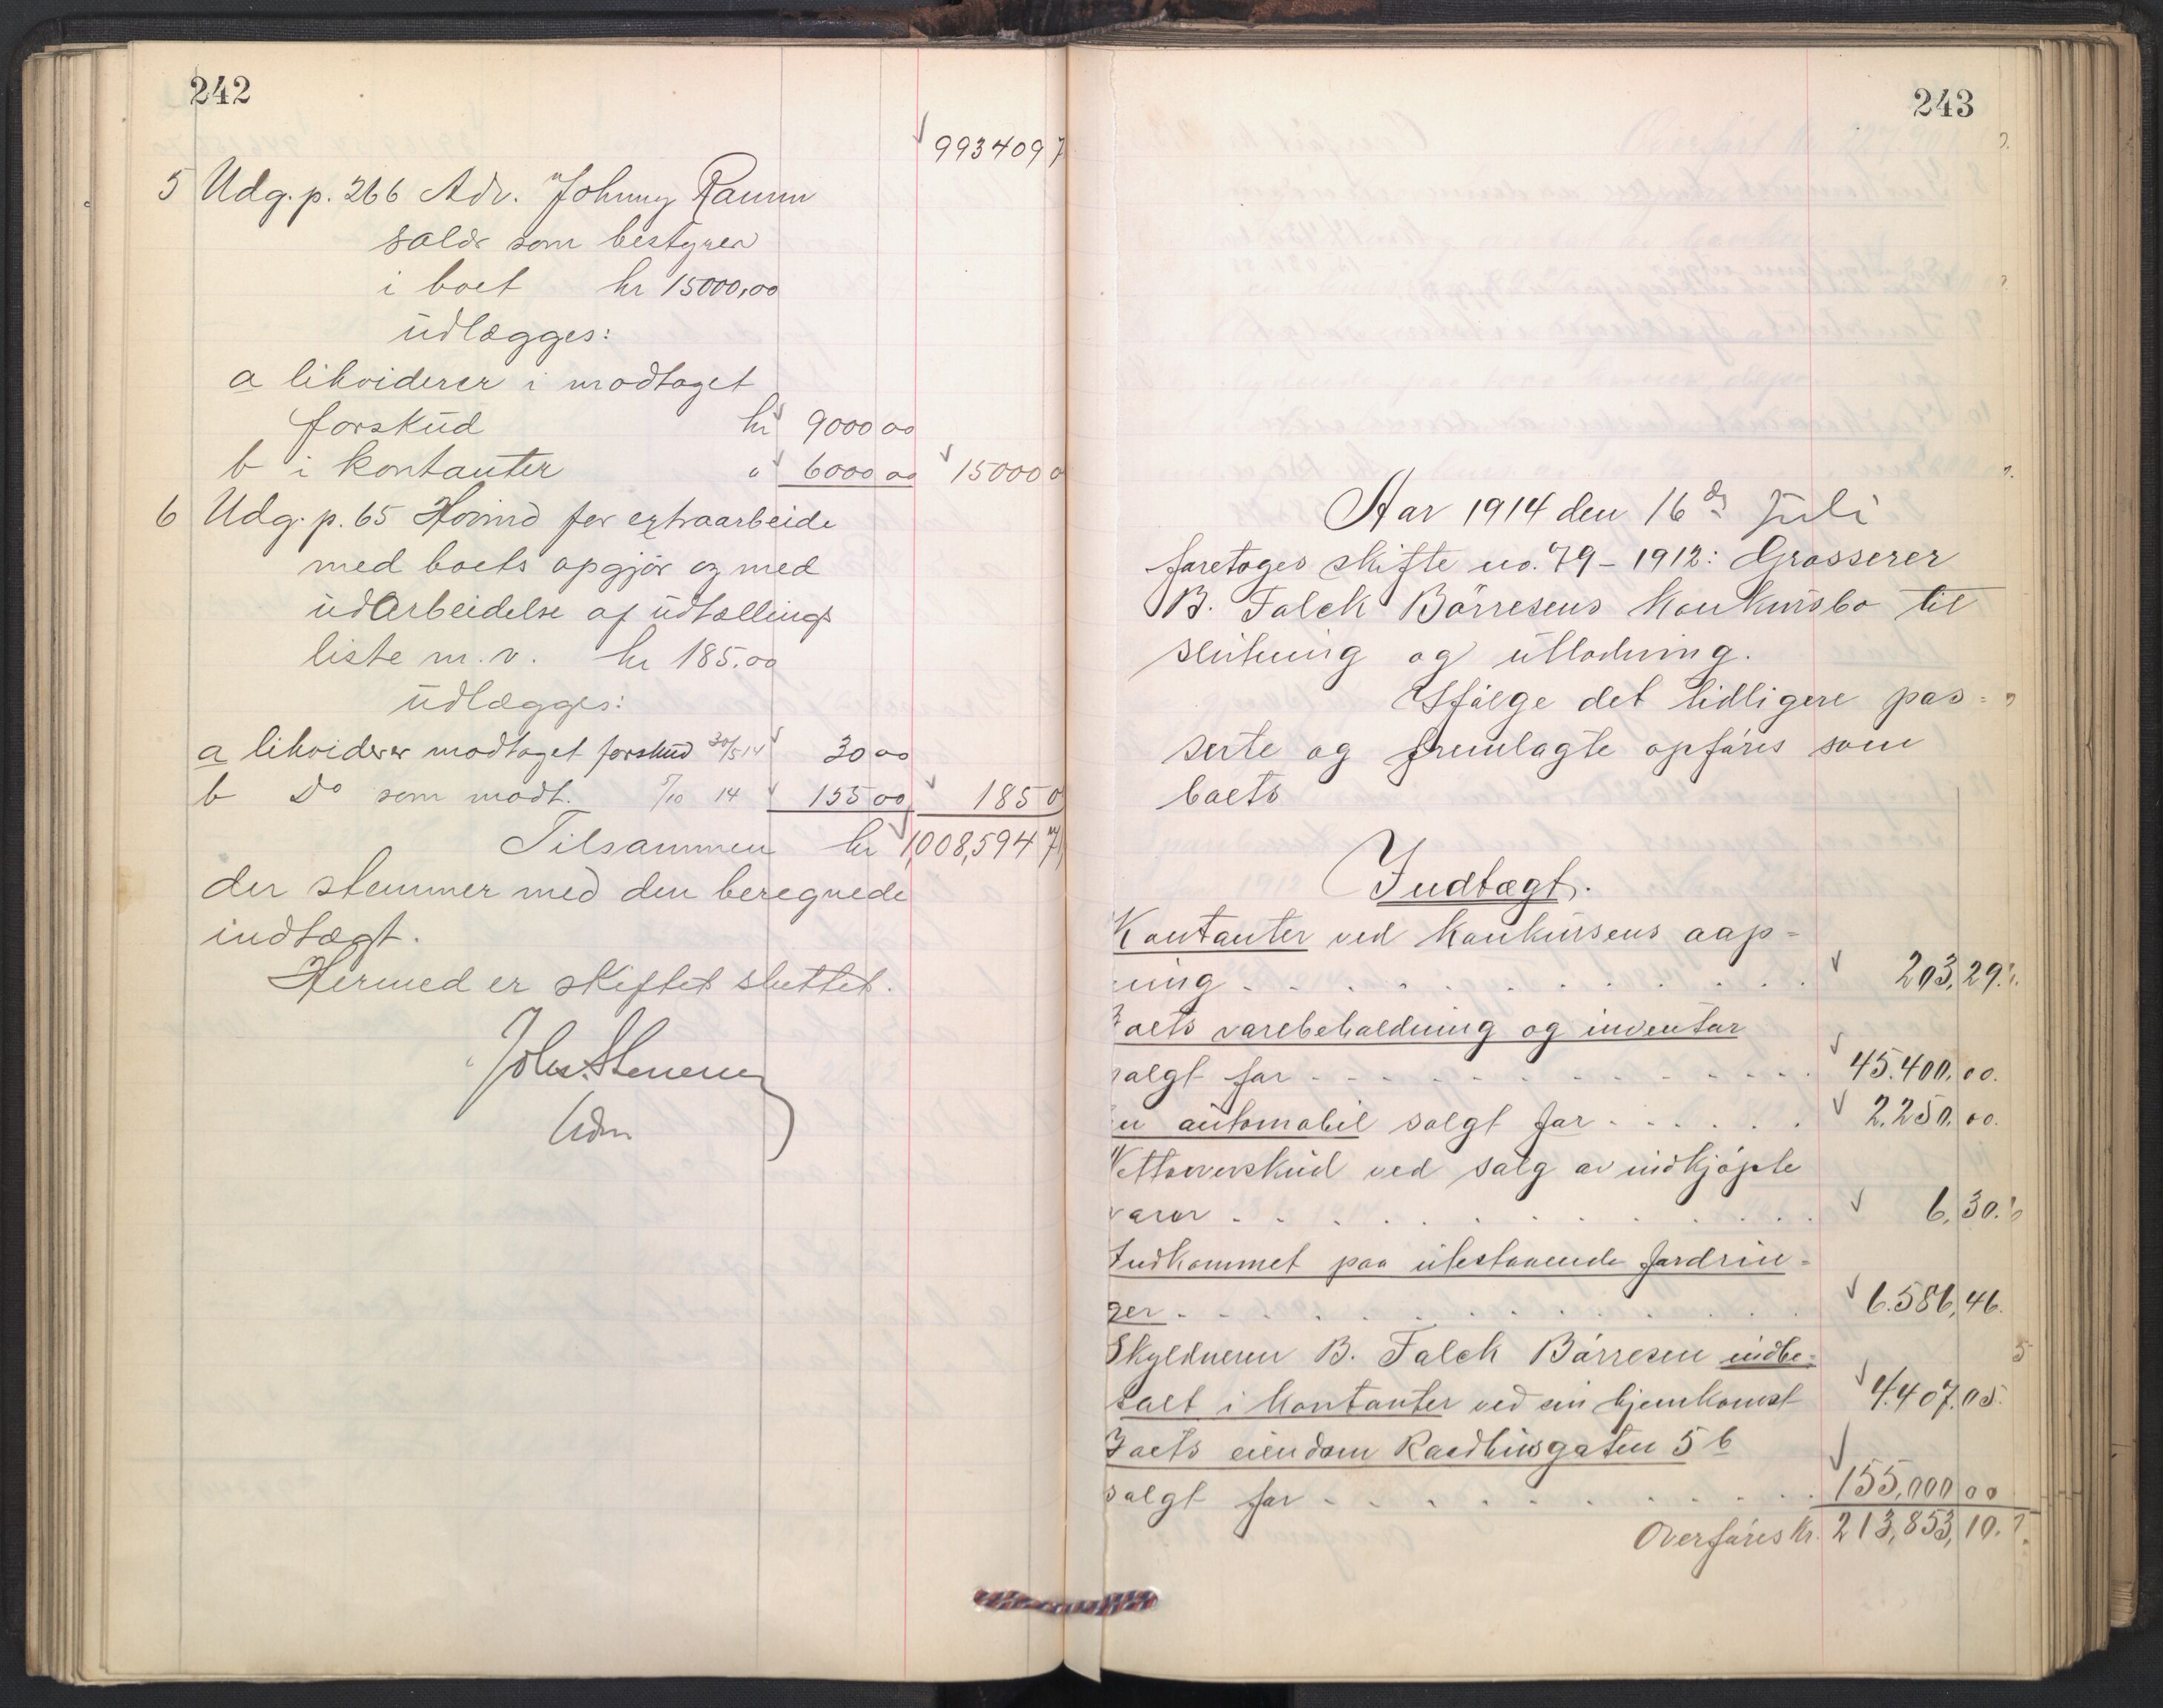 242
993409 7
5 Udg. p. 266 Adv. Johnny Ramm
salær som bestyrer
i boet kr 15000,00
udlægges:
a likviderer i modtaget
forskud kr 9000 00
b i kontanter " 6000 00 15000 0
6 Udg. p. 65 for extraarbeide
med boets opgjør og med
udarbeidelse af udtællings
liste m. v. kr 185.00
udlægges:
a likviderer modtaget forskud 30/5 14 30 00
b Do som modt. 5/10 14 155 00 185 0
Tilsammen kr 1,008,594 7
der stemmer med den beregnede
indtægt.
Hermed er skiftet sluttet.
243
Aar 1914 den 16de Juli
foretoges skifte no. 79 - 1912: Grosserer
B. Falck Börresens konkursbo til
slutning og utlodning.
Ifølge det tidligere pas=
serte og fremlagte opføres som
boets
Indtægt.
Kontanter ved konkursens aap=
ning 203,29.
Boets varebeholdning og inventar
solgt for 45.400,00.
En automobil solgt for 2.250,00.
Nettooverskud ved salg av indkjøpte
varer 6,30.
Indkommet paa utestaaende fordrin=
ger 6.586,46.
Skyldneren B. Falck Börresen indbe=
talt i kontanter ved sin hjemkomst 4.407,05.
Boets eiendom Raadhusgaten 5b
solgt for 155,000 00
Overføres kr. 213,853,10.